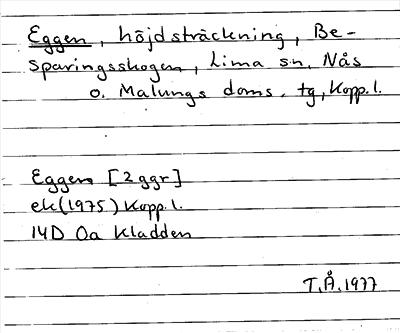 Eggen, höjdsträckning, Be-
sparingsskogen, Lima sn, Nås
o. Malungs doms. tg, Kopp.l.
Eggen [2 ggr]
ek(1975) Kopp.l.
14D 0a Kladden
T.Å.1977